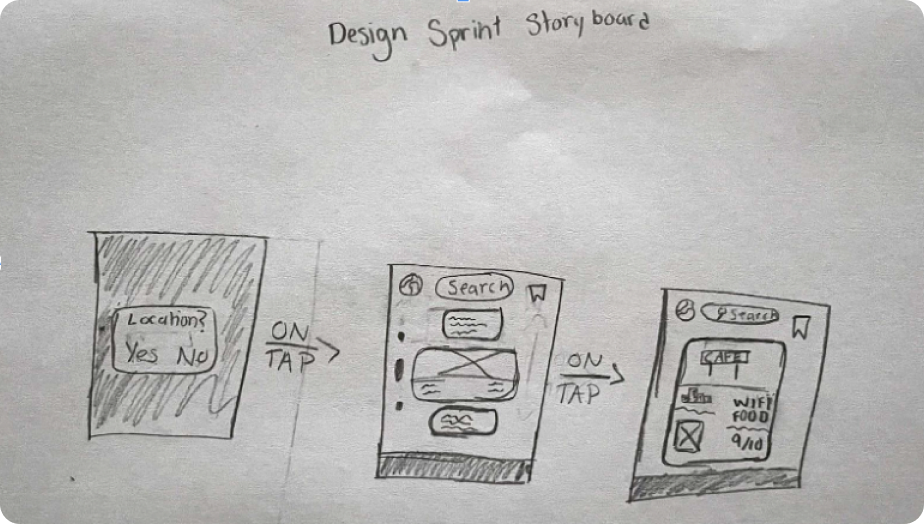 Design Sprint Storyboard
Location?
Yes No
ON
TAP
Search
ON
TAP
Search
CAFE
WIFI
FOOD
9/10